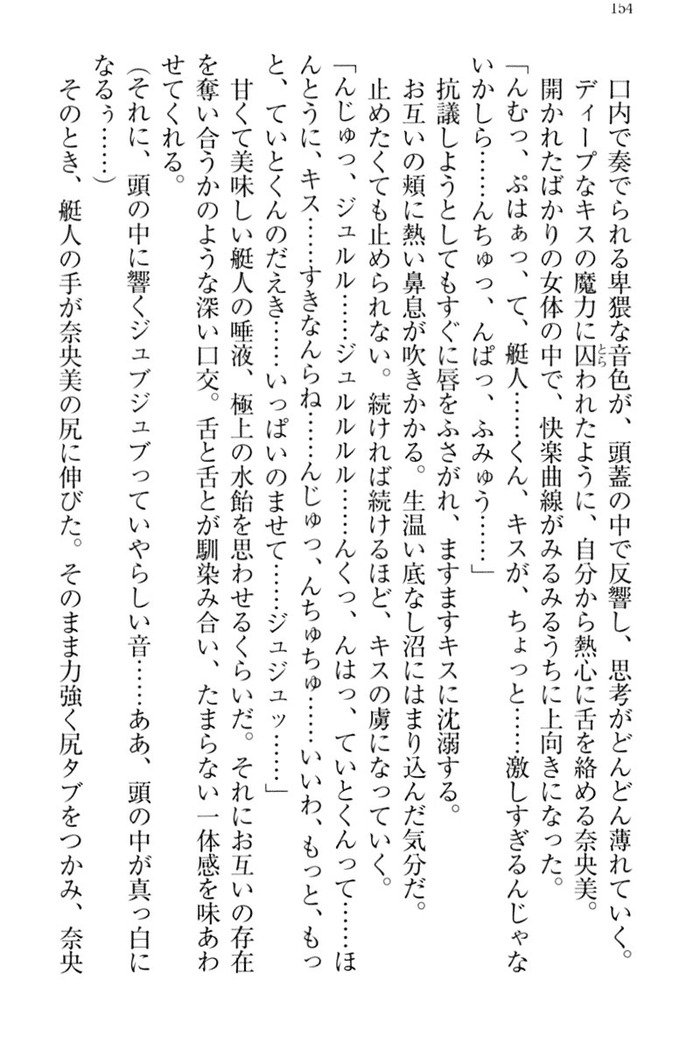 154
口内で奏でられる卑猥な音色が、頭蓋の中で反響し、思考がどんどん薄れていく。
ディープなキスの魔力に囚われたように、自分から熱心に舌を絡める奈央美。
とら
開かれたばかりの女体の中で、快楽曲線がみるみるうちに上向きになった。
「んむっ、ぷはぁっ、て、艇人……くん、キスが、ちょっと……激しすぎるんじゃな
いかしら……んちゅっ、んぱっ、ふみゅう……」
抗議しようとしてもすぐに唇をふさがれ、ますますキスに沈溺する。
お互いの頬に熱い鼻息が吹きかかる。生温い底なし沼にはまり込んだ気分だ。
止めたくても止められない。続ければ続けるほど、キスの虜になっていく。
「んじゅっ、ジュルル……ジュルルルル……んくっ、んはっ、ていとくんって……ほ
んとうに、キス……すきなんらね……んじゅっ、んちゅちゅ……いいわ、もっと、もっ
と、ていとくんのだえき……いっぱいのませて……ジュジュッ……」
甘くて美味しい艇人の唾液、極上の水飴を思わせるくらいだ。それにお互いの存在
を奪い合うかのような深い口交。舌と舌とが馴染み合い、たまらない一体感を味あわ
せてくれる。
(それに、頭の中に響くジュブジュブっていやらしい音……ああ、頭の中が真っ白に
なるぅ……)
そのとき、艇人の手が奈央美の尻に伸びた。そのまま力強く尻タブをつかみ、奈央